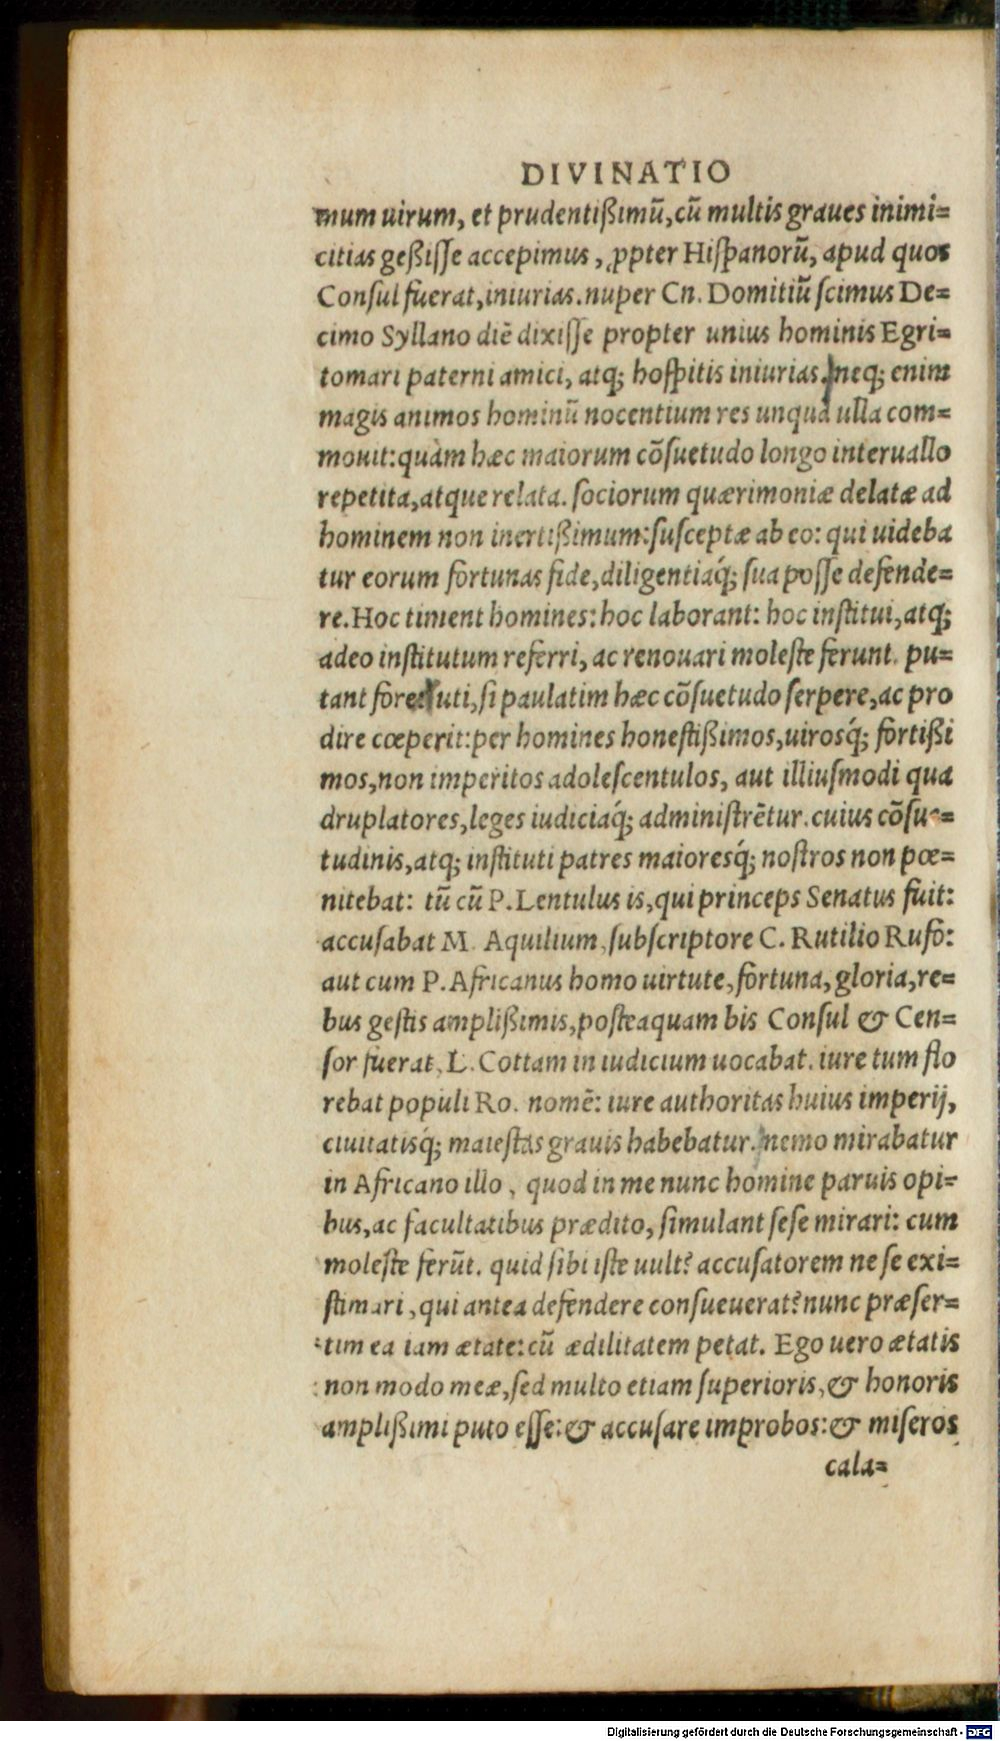 DIVINATIO
mum uirum, et prudentißimū, cū multis graues inimi=
citias geßiſſe accepimus, ꝓpter Hiſpanorū, apud quos
Conſul fuerat, iniurias. nuper Cn. Domitiū ſcimus De=
cimo Syllano diē dixiſſe propter unius hominis Egri=
tomari paterni amici, atq; hoſpitis iniurias. neq; enim
magis animos hominū nocentium res unquā ulla com=
mouit: quàm hæc maiorum cōſuetudo longo interuallo
repetita, atque relata. ſociorum quærimoniæ delatæ ad
hominem non inertißimum: ſuſceptæ ab eo: qui uideba
tur eorum fortunas fide, diligentiaq́; ſua poſſe defende=
re. Hoc timent homines: hoc laborant: hoc inſtitui, atq;
adeo inſtitutum referri, ac renouari moleſte ferunt. pu=
tant fore: uti, ſi paulatim hæc cōſuetudo ſerpere, ac pro
dire cœperit: per homines honeſtißimos, uirosq́; fortißi
mos, non imperitos adoleſcentulos, aut illiuſmodi qua
druplatores, leges iudiciaq́; adminiſtrētur. cuius cōſue=
tudinis, atq; inſtituti patres maioresq́; noſtros non pœ=
nitebat: tū cū P. Lentulus is, qui princeps Senatus fuit:
accuſabat M. Aquilium, ſubſcriptore C. Rutilio Rufo:
aut cum P. Africanus homo uirtute, fortuna, gloria, re=
bus geſtis amplißimis, poſteaquam bis Conſul & Cen=
ſor fuerat, L. Cottam in iudicium uocabat. iure tum flo
rebat populi Ro. nomē: iure authoritas huius imperij,
ciuitatisq́; maieſtas grauis habebatur. nemo mirabatur
in Africano illo, quod in me nunc homine paruis opi=
bus, ac facultatibus prædito, ſimulant ſeſe mirari: cum
moleſte ferūt. quid ſibi iſte uult? accuſatorem ne ſe exi=
ſtimari, qui antea defendere conſueuerat? nunc præſer=
tim ea iam ætate: cū ædilitatem petat. Ego uero ætatis
non modo meæ, ſed multo etiam ſuperioris, & honoris
amplißimi puto eſſe: & accuſare improbos: & miſeros
cala=
Digitalisierung gefördert durch die Deutsche Forschungsgemeinschaft - DFG